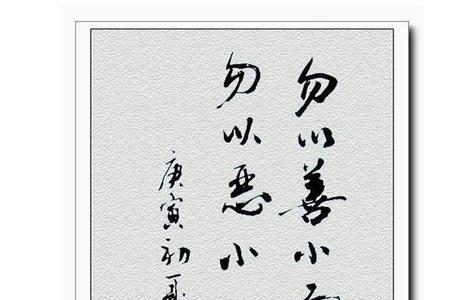 勿以善小而
勿以恶小
庚寅初夏